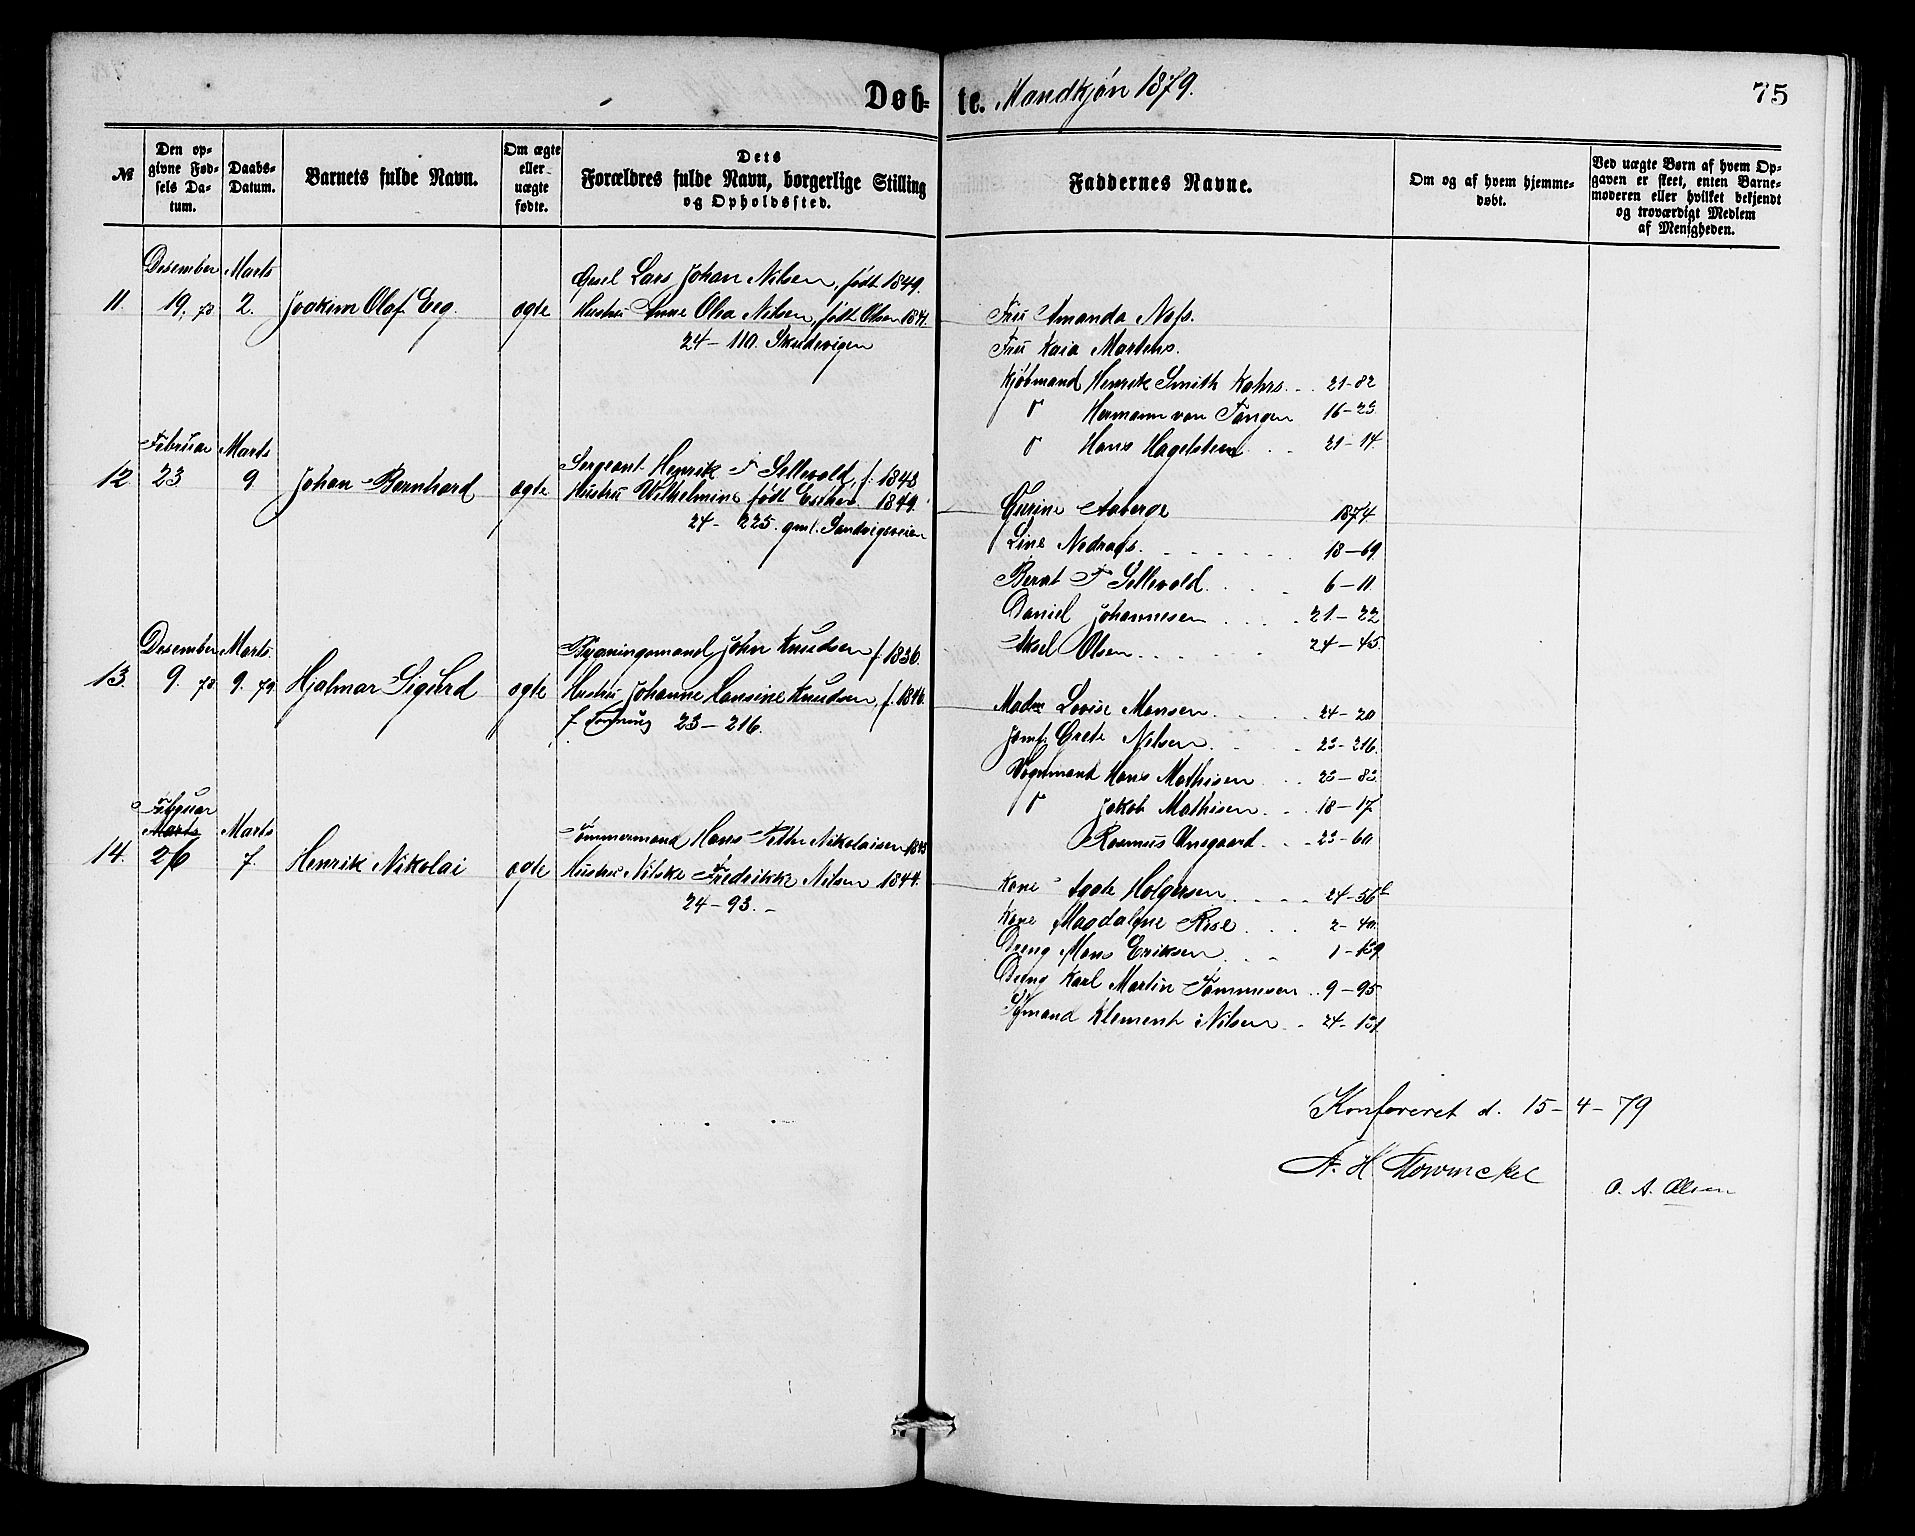 Døb-te. Mandkjøn 1879.
75
№
Den op-
givne Fød-
sels Da-
tum.
Daabs-
Datum.
Barnets fulde Navn.
Om ægte
eller
uægte
fødte.
Dets
Forældres fulde Navn, borgerlige Stilling
og Opholdssted.
Faddernes Navne.
Om og af hvem hjemme-
døbt.
Ved uægte Børn af hvem Op-
gaven er skeet, enten Barne-
moderen eller hvilket bekjendt
og troværdigt Medlem
af Menigheden.
Desember Marts
11. 19, 78 2. Joakim Olaf Eeg. ægte
Lars Johan Nilsen, født 1849.
Hustru Anne Olea Nilsen, født Olsen 1841.
24 – 110. Skudevigen
Fru Amanda
Fru Kaia Martens.
Kjøbmand Henrik Smith Kahrs 21-82
Hermann von Tangen 16-23
Hans Hagelsteen 21-14.
Februar Marts
12. 23 9 Johan Bernhard ægte
Sergeant Henrik F Sellevold, f. 1843
Hustru Wilhelmine født 1849.
24- 225. gml. Sandvigsveien
Gurine Aaberge 1874
Line 18-69
Bernt F Sellevold 6-11
Daniel Johannesen 21-22
Aksel Olsen 24-45
Desember Marts.
13. 9. 78 9. 79. Hjalmar Sigurd ægte
Bygningsmand John Knudsen f. 1836.
Hustru Johanne Knudsen, f. 1846.
23-216.
Lovise Monsen 24-20
Jomf. Grete Nilsen 23-216.
Vognmand Hans Mathisen 23-83
Jakob Mathisen 18-17
Rasmus 23-60
Februar
Marts Marts
14. 26 7. Henrik Nikolai ægte
Tømmermand Hans Pether Nikolaisen 1843
Hustru Nilske Fredrikke Nilsen 1844.
24-93.
Kone Holgersen 24-56
Kone Magdalene Rise 2-40
Dreng Mons Eriksen 1-159
Dreng Karl Martin Tommesen 9-95
Klement Nilsen 24-151
Konfereret d. 15-4-79
A. H. Mowinckel
O. A. Olsen